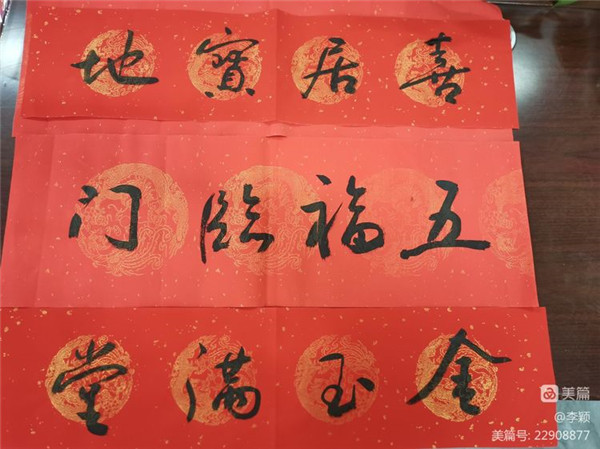 喜居寳地
五福臨门
金玉满堂
美篇
@李颖
美篇号: 22908877